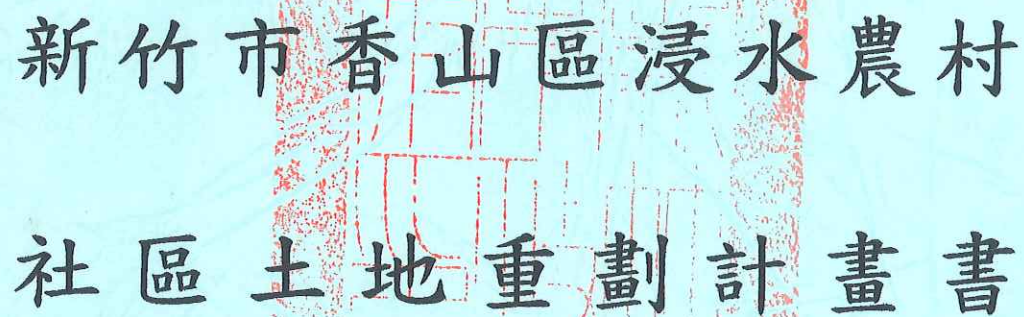 新竹市香山區浸水農村
社區土地重劃計畫書